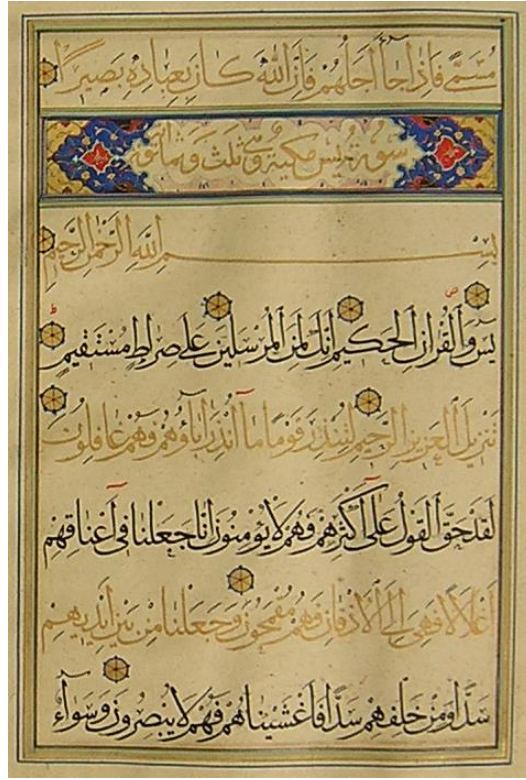 مُسَمًّى فَإِذَا جَاءَ أَجَلُهُمْ فَإِنَّ اللَّهَ كَانَ بِعِبَادِهِ بَصِيرًا
سورة يس مكية وهي ثلث وثمانون آية
بِسْمِ اللَّهِ الرَّحْمَنِ الرَّحِيمِ
يس وَالْقُرْآنِ الْحَكِيمِ إِنَّكَ لَمِنَ الْمُرْسَلِينَ عَلَى صِرَاطٍ مُسْتَقِيمٍ
تَنْزِيلَ الْعَزِيزِ الرَّحِيمِ لِتُنْذِرَ قَوْمًا مَا أُنْذِرَ آبَاؤُهُمْ فَهُمْ غَافِلُونَ
لَقَدْ حَقَّ الْقَوْلُ عَلَى أَكْثَرِهِمْ فَهُمْ لَا يُؤْمِنُونَ إِنَّا جَعَلْنَا فِي أَعْنَاقِهِمْ
أَغْلَالًا فَهِيَ إِلَى الْأَذْقَانِ فَهُمْ مُقْمَحُونَ وَجَعَلْنَا مِنْ بَيْنِ أَيْدِيهِمْ
سَدًّا وَمِنْ خَلْفِهِمْ سَدًّا فَأَغْشَيْنَاهُمْ فَهُمْ لَا يُبْصِرُونَ وَسَوَاءٌ